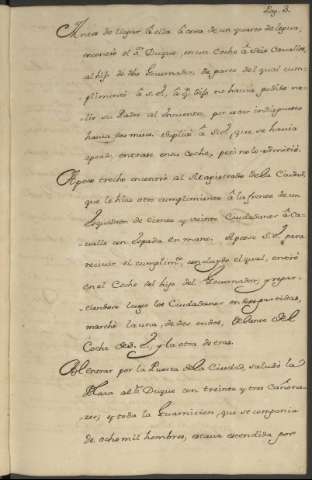 Pag. 3.
Antes de llegar a ella la cerca de un quarto de legua,
encontró el Sr. Duque, en un Coche a seis Cavallos,
al hijo de dho Governador, de parte del qual cum-
plimentó a S.E.
havia dos meses. Suplicó a S.E. que se havia
entrase en su coche, pero no lo admitió.
A poco trecho encontró al Magistrado de la Ciudad,
que le hizo otro cumplimiento a la frente de un
Esquadron de ciento y veinte Ciudadanos a Ca-
vallo con Espada en mano. Apeose S.E. para
recivir el cumplimto. concluydo el qual, entró
en el Coche del hijo del Governador, y repar-
tiendose luego los Ciudadanos en dos partidas,
marchó la una, de dos en dos, delante del
Coche de S.E. y la otra detras.
Al entrar por la Puerta de la Ciudad, saludó la
Plaza al Sr. Duque con treinta y tres Cañona-
zos; y toda la Guarnicion, que se componia
de ocho mil hombres, estava estendida por